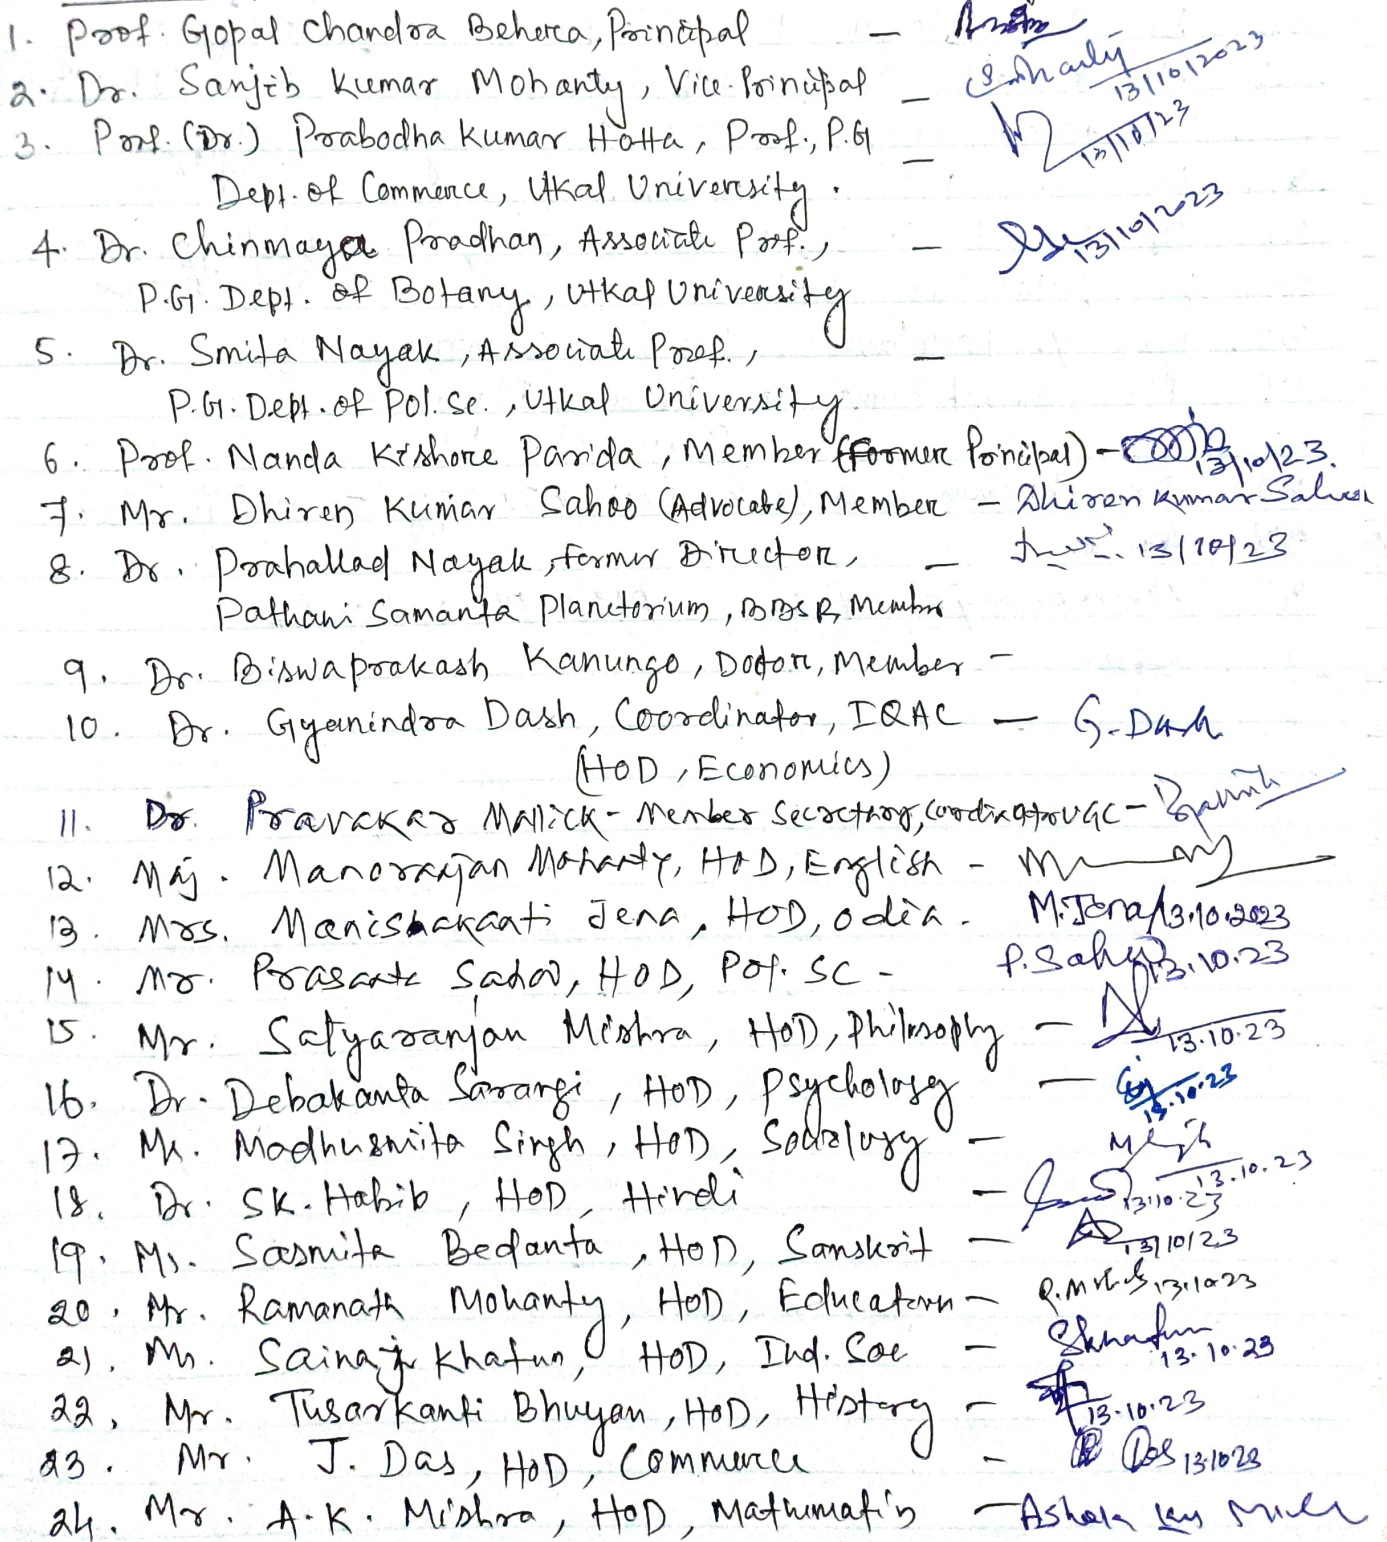 1. Prof. Gopal Chandra Behera, Principal –
2. Dr. Sanjib Kumar Mohanty, Vice-Principal – 13/10/2023
3. Prof. (Dr.) Prabodha Kumar Hotta, Prof., P.G – 13/10/23
Dept. of Commerce, Utkal University.
4. Dr. Chinmaya Pradhan, Associate Prof., – 13/10/2023
P.G. Dept. of Botany, Utkal University
5. Dr. Smita Nayak, Associate Prof., –
P.G. Dept. of Pol. Sc., Utkal University.
6. Prof. Nanda Kishore Parida, Member (Former Principal) – 13/10/23.
7. Mr. Dhiren Kumar Sahoo (Advocate), Member – Dhiren Kumar Sahoo
8. Dr. Prahallad Nayak, former Director, – 13/10/23
Pathani Samanta Planetorium, BBSR, Member
9. Dr. Biswaprakash Kanungo, Doctor, Member –
10. Dr. Gyanindra Dash, Coordinator, IQAC – G. Dash
(HOD, Economics)
11. Dr. Pravakar Mallick – Member Secretary, Coordinator UGC –
12. Maj. Manoranjan Mohanty, HOD, English –
13. Mrs. Manishakanti Jena, HOD, odia – M. Jena 13.10.2023
14. Mr. Prasanta Sahoo, HOD, Pol. SC – P. Sahoo 13.10.23
15. Mr. Satyaranjan Mishra, HOD, Philosophy – 13.10.23
16. Dr. Debakanta Sarangi, HOD, Psychology – 13.10.23
17. Ms. Madhusmita Singh, HOD, Sociology – 13.10.23
18. Dr. SK. Habib, HOD, Hindi – 13.10.23
19. Ms. Sasmita Bedanta, HOD, Sanskrit – 13/10/23
20. Mr. Ramanath Mohanty, HOD, Education – 13.10.23
21. Ms. Sainaj Khatun, HOD, Ind. Soc – Skhatun 13.10.23
22. Mr. Tusarkanti Bhuyan, HOD, History – 13.10.23
23. Mr. J. Das, HOD, Commerce – Das 13.10.23
24. Mr. A.K. Mishra, HOD, Mathematics –